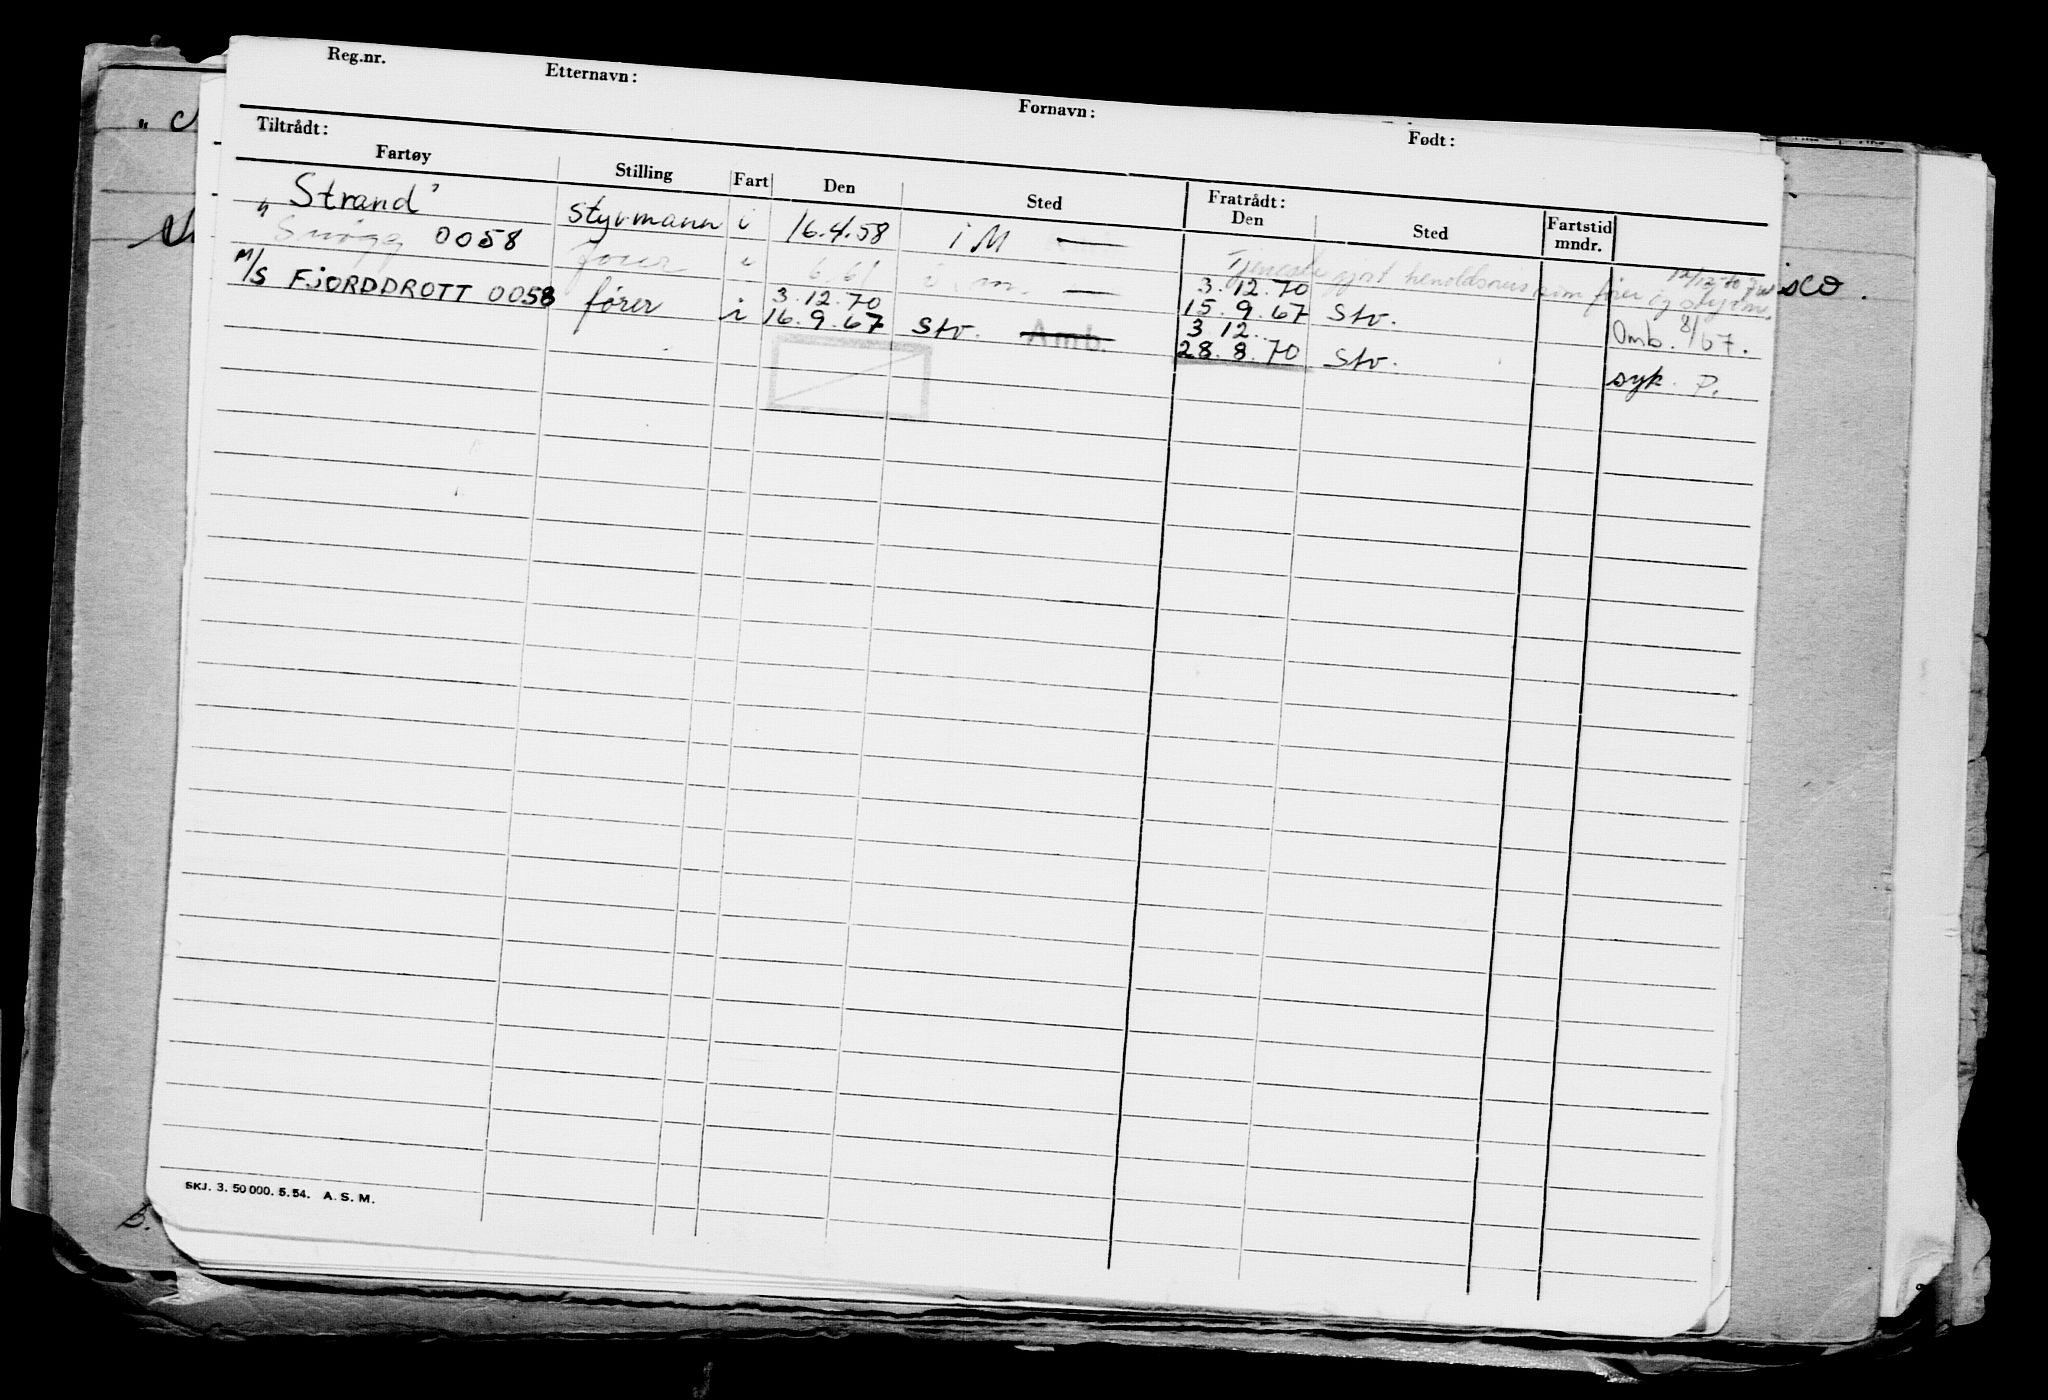 Reg.nr. Etternavn: Fornavn: Født:
Tiltrådt: Fratrådt:
Fartøy Stilling Fart Den Sted Den Sted Fartstid mndr.
"Strand" styrmann i 16.4.58 i M —
Snøgg 0058 fører i 6/61 i m. — Tjeneste gjort henoldsvis som fører og styrm.
3.12.70 3.12.70
M/S FJORDDROTT 0058 fører i 16.9.67 Stv. Amb. 15.9.67 Stv. Omb. 8/67.
3.12.
28.8.70 Stv. syk. P.
sco.
SKJ. 3. 50 000. 5.54. A. S. M.